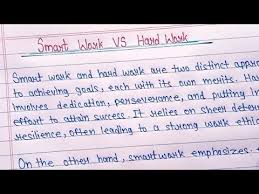 Smart Work VS Hard Work
Smart work and hard work are two distinct appro
to achieving goals, each with its own merits. Har
involves dedication, perseverance, and putting in
effort to attain success. It relies on sheer deter
resilience, often leading to a strong work ethic
On the other hand, smartwork emphasizes